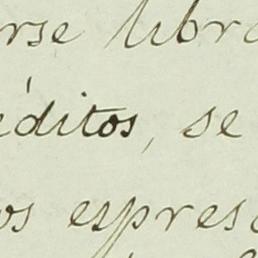 rse libra
éditos, se
os espresa